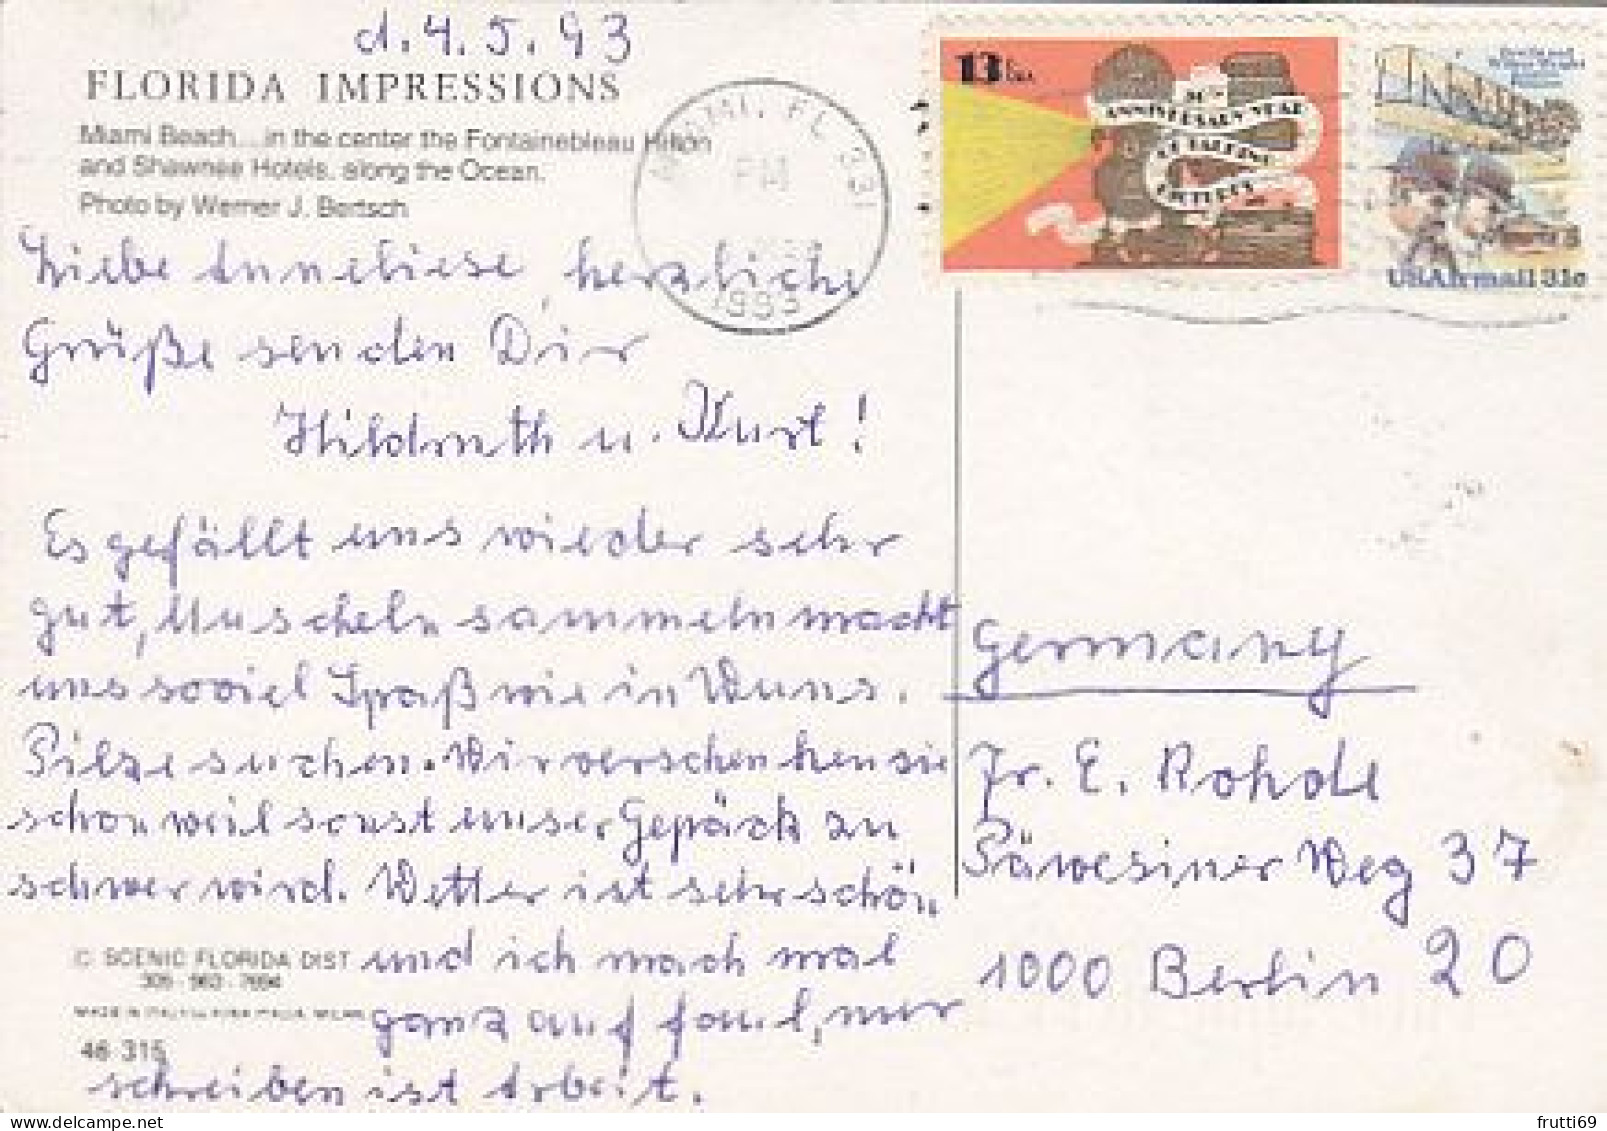 d. 4.5.93
FLORIDA IMPRESSIONS
Miami Beach... in the center the Fontainebleau Hilton
and Shawnee Hotels, along the Ocean.
Photo by Werner J. Bertsch
Liebe Anneliese, herzliche
Grüße senden Dir
Hildruth u. Kurt!
Es gefällt uns wieder sehr
gut, Muscheln sammeln macht
uns soviel Spaß wie in
Pilze suchen. Wir verschenken sie
schon weil sonst unser Gepäck zu
schwer wird. Wetter ist sehr schön
und ich mach mal
ganz auf faul, nur
schreiben ist Arbeit.
© SCENIC FLORIDA DIST
305 - 963 - 7694
MADE IN ITALY
46 315
MIAMI, FL 331
PM
1993
13c USA
50th
ANNIVERSARY YEAR
OF TALKING
PICTURES
Orville and
Wilbur Wright
USAirmail 31c
Germany
Fr. E. Rohde
Päwesiner Weg 37
1000 Berlin 20
frutti69